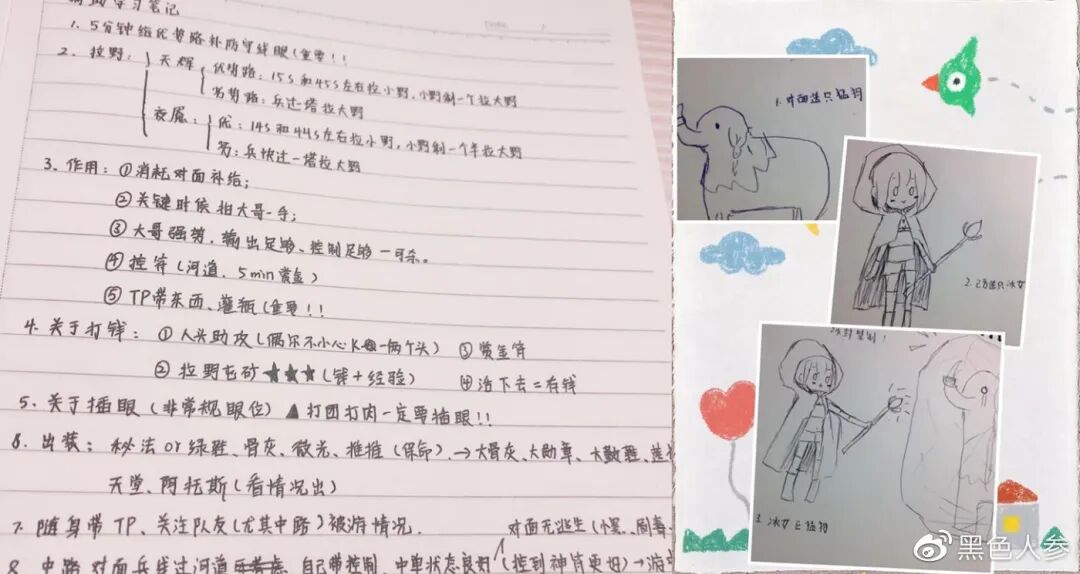 学习笔记
1. 5分钟给优势路补防守线眼(重要!!
2. 拉野:
天辉
优势路: 15s 和45s左右拉小野,小野剩一个拉大野
劣势路: 兵过塔拉大野
夜魇:
优: 14s和44s左右拉小野,小野剩一个半拉大野
劣: 兵快过一塔拉大野
3. 作用: ①消耗对面补给;
②关键时候拍大哥一手;
③大哥强势,输出足够、控制足够一可杀。
④控符(河道、5min赏金)
⑤TP带东西、灌瓶(重要!!
4. 关于打钱: ①人头助攻(偶尔不小心K一两个头) ③赏金符
②拉野屯野★★★(钱+经验) ④活下去=有钱
5. 关于插眼(非常规眼位) ▲打团打肉一定要插眼!!
6. 出装: 秘法or绿鞋、骨灰、微光、推推(保命).→大骨灰、大勋章、大鼓鞋、莲
天堂、阿托斯(看情况出)
7. 随身带TP、关注队友(尤其中路)被游情况.
对面无逃生(小黑、剧毒、
8. 中路对面兵线过河道 自己带控制、中单状态良好(控到神符更好)→游
1. 对面选只猛犸
2. 己方选只冰女
冰封禁制!
3. 冰女E猛犸
黑色人参